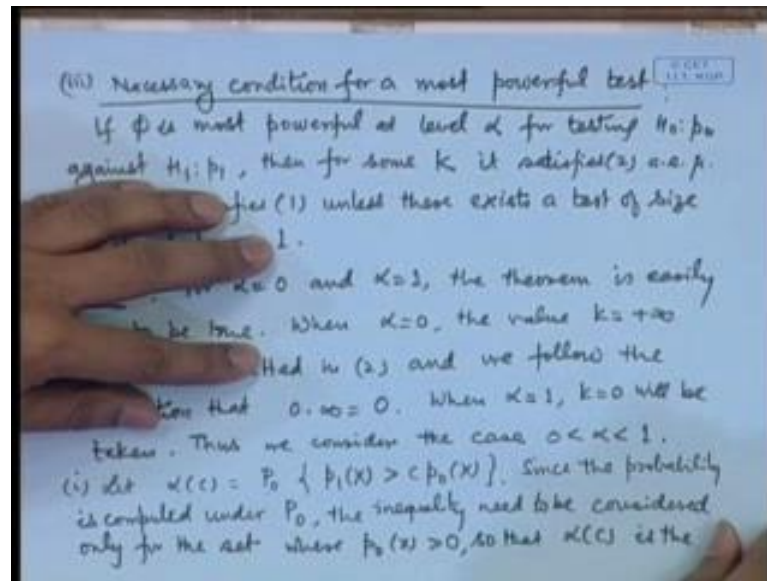 (iii) Necessary condition for a most powerful test.
© CET
I.I.T. KGP
If φ is most powerful at level α for testing H₀: p₀
against H₁: p₁, then for some k it satisfies (2) a.e. μ.
fies (1) unless there exists a test of size
1.
α=0 and α=1, the theorem is easily
to be true. When α=0, the value k=+∞
tted in (2) and we follow the
tion that 0.∞=0. When α=1, k=0 will be
taken. Thus we consider the case 0<α<1.
(i) Let α(c) = P₀ { p₁(X) > c p₀(X) }. Since the probability
is computed under P₀, the inequality need to be considered
only for the set where p₀(x) >0, so that α(c) is the